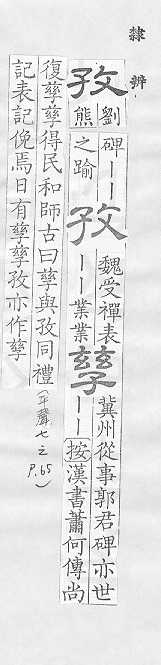 隸辨
孜
劉
熊
碑——
之踰
孜
魏受禪表
——業業
孳
冀州從事郭君碑亦世
——按漢書蕭何傳尚
復孳孳得民和師古曰孳與孜同禮
記表記俛焉日有孳孳孜亦作孳
(平聲七之
P.65)